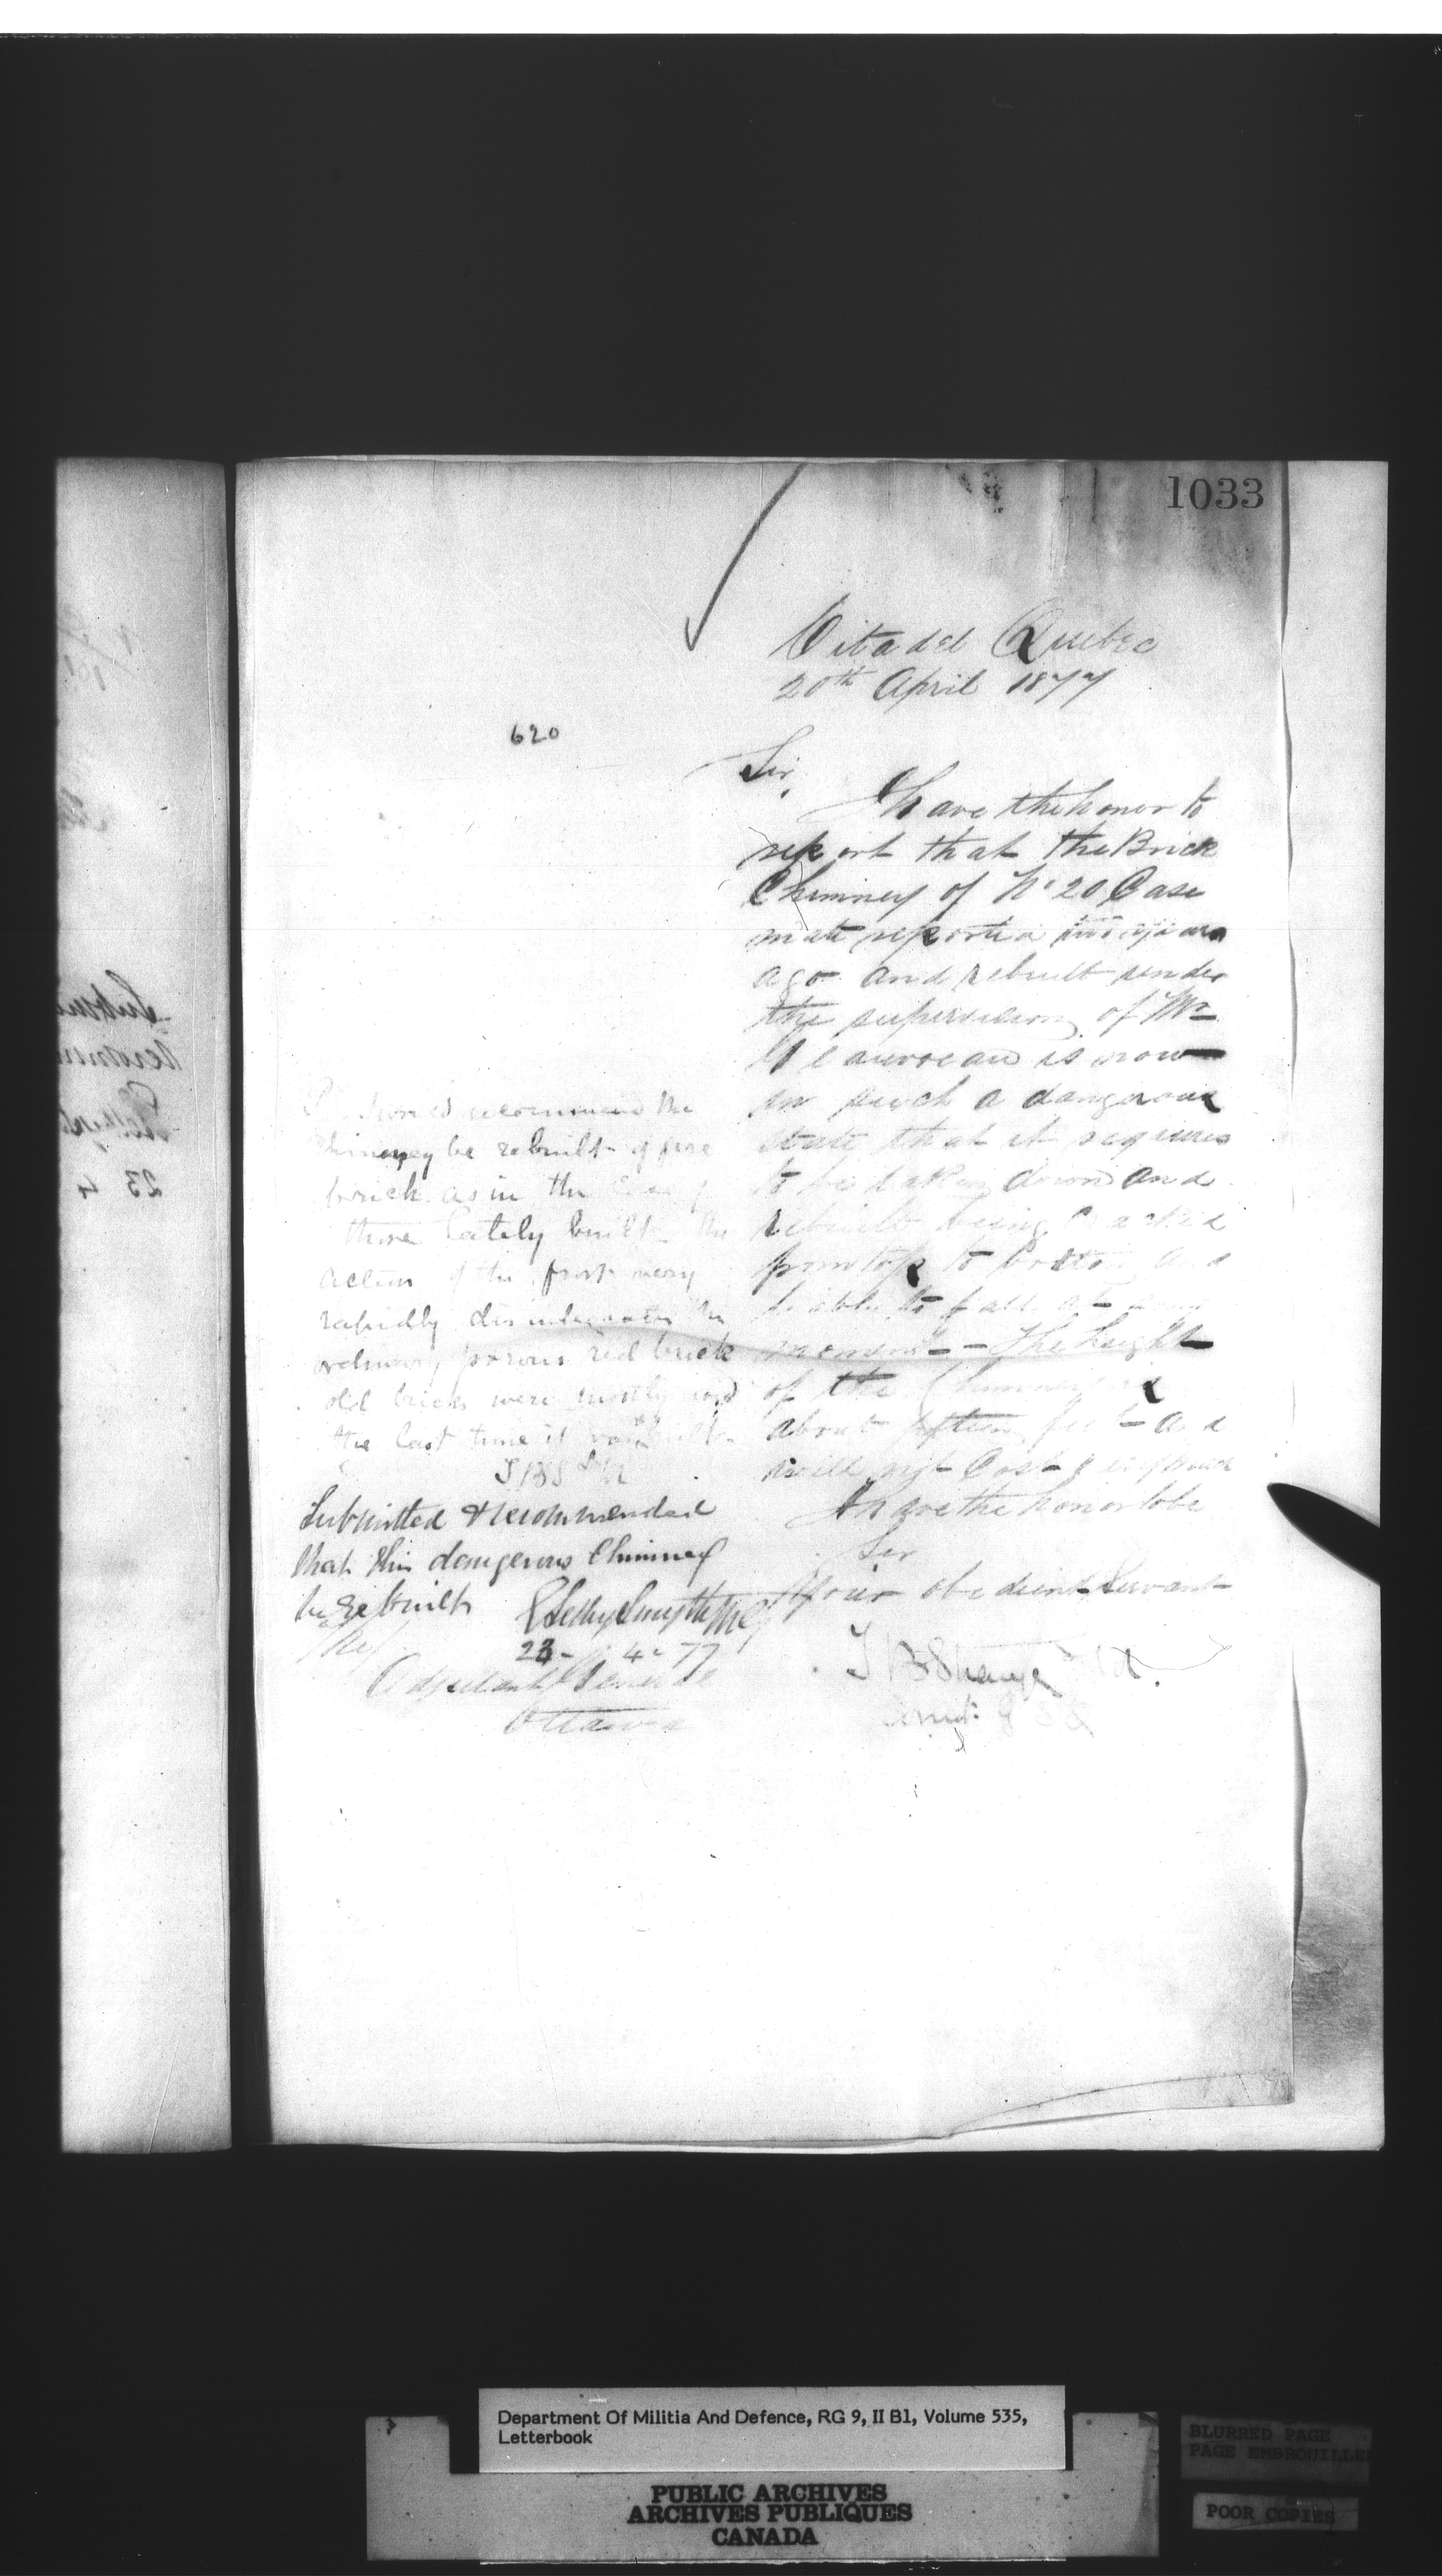 1033
Citadel Quebec
20th April 1877
620
Sir,
I have the honor to
report that the Brick
Chimney of No 20 Case
mate reported two years
ago and rebuilt under
the supervision of Mr
is now
in such a dangerous
state that it requires
to be taken down and
rebuilt being cracked
from top to bottom and
liable to fall at any
moment - The height
of the Chimney is
about fifteen feet and
will not Cost
I have the honor to be
Sir
Your obedient Servant
T B Strange Lt Col.
I would recommend the
chimney be rebuilt of fire
brick as in the case of
those lately built the
action of the frost very
rapidly disintegrates the
ordinary porous red brick
old bricks were mostly used
the last time it was rebuilt
TBS Lt Col
Submitted & recommended
that this dangerous Chimney
be rebuilt
E Selby Smyth M G
23 - 4 - 77
The
Adjutant General
Ottawa
23 4
Department Of Militia And Defence, RG 9, II B1, Volume 535,
Letterbook
PUBLIC ARCHIVES
ARCHIVES PUBLIQUES
CANADA
BLURRED PAGE
PAGE EMBROUILLEE
POOR COPIES